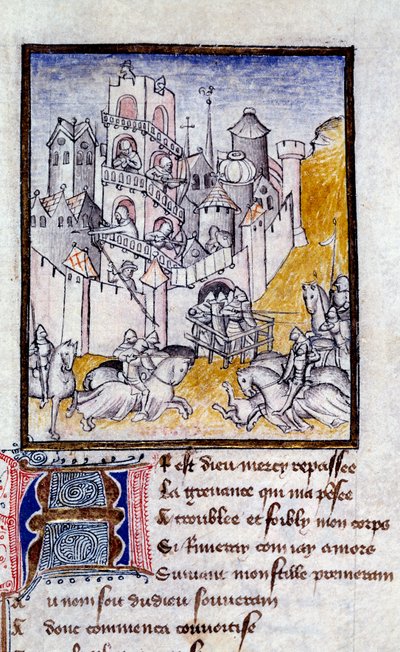 R est dieu mercy repassee
La grevance qui ma pesee
A troublee et foibly mon corps
Si Riveray com iay amors
Suivant mon stille premerain
A u nom soit du dieu souverain
A donc commenca couvoitise